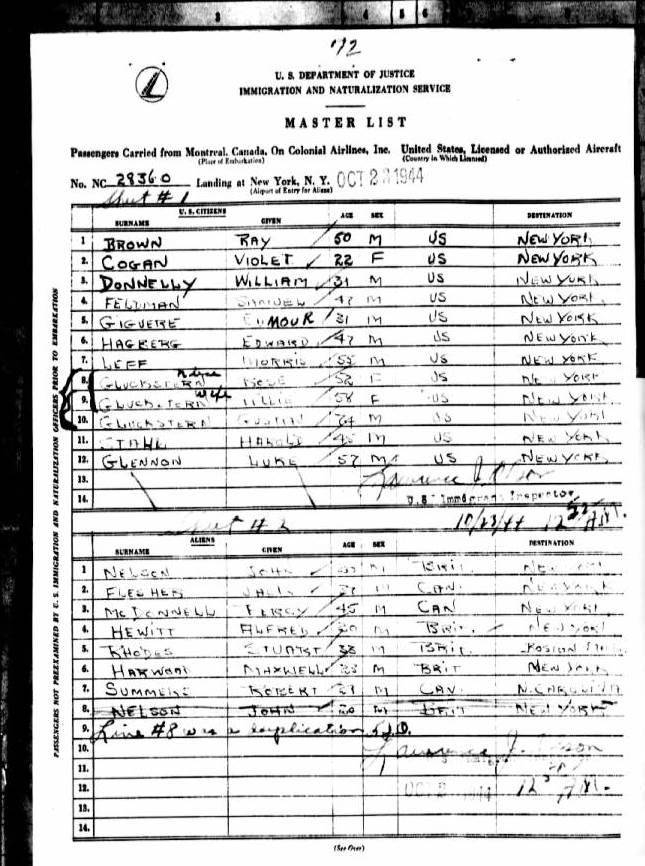 192
U. S. DEPARTMENT OF JUSTICE
IMMIGRATION AND NATURALIZATION SERVICE
MASTER LIST
Passengers Carried from Montreal, Canada, On Colonial Airlines, Inc. United States, Licensed or Authorized Aircraft
(Place of Embarkation) (Country in Which Licensed)
No. NC 28360 Landing at New York, N. Y. OCT 23 1944
(Airport of Entry for Aliens)
Sheet #1
U. S. CITIZENS
SURNAME GIVEN AGE SEX DESTINATION
1 BROWN RAY 50 M US NEW YORK
2. COGAN VIOLET 22 F US NEW YORK
3. DONNELLY WILLIAM 31 M US NEW YORK
4. FELDMAN 47 M US NEW YORK
5. GIGUERE 31 M US NEW YORK
6. HAGBERG EDWARD 47 M US NEW YORK
7. LEFF MORRIS 55 M US NEW YORK
8. GLUCKSTERN ROSE 52 F US NEW YORK
9. GLUCKSTERN wife 58 F US NEW YORK
10. GLUCKSTERN M US NEW YORK
11. STAHL HAROLD M US NEW YORK
12. GLENNON LUKE 57 M US NEW YORK
13.
14. U.S. Immigrant Inspector
Sheet #2 10/23/44 12 AM.
ALIENS
SURNAME GIVEN AGE SEX DESTINATION
1 NELSON JOHN M BRIT. NEW YORK
2. M CAN. NEW YORK
3. McDONNELL PERCY 45 M CAN NEW YORK
4. HEWITT ALFRED M BRIT. NEW YORK
5. RHODES STUART 38 M BRIT. BOSTON
6. HARWOOD MAXWELL M BRIT NEW YORK
7. SUMMERS ROBERT M CAN. N. CAROLINA
8. NELSON JOHN M BRIT NEW YORK
9. Line #8 was a duplication
10. Lawrence J.
11.
12. OCT 2 1944 12 AM.
13.
14.
(See Over)
PASSENGERS NOT PREEXAMINED BY U. S. IMMIGRATION AND NATURALIZATION OFFICERS PRIOR TO EMBARKATION